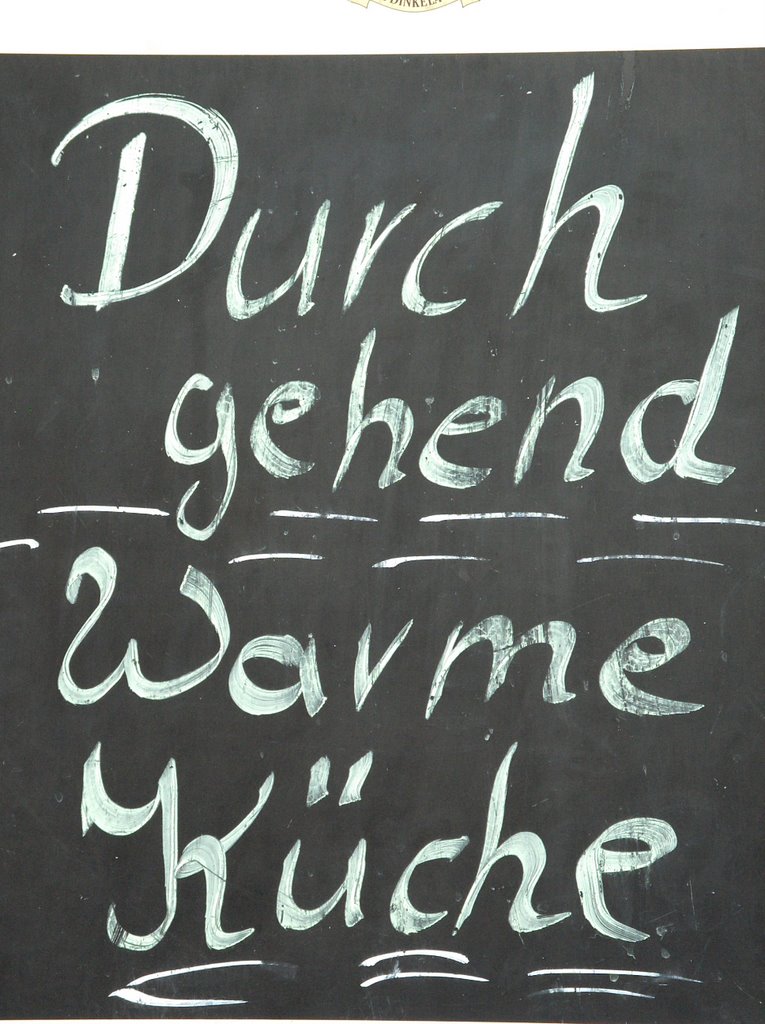 Durch
gehend
Warme
Küche